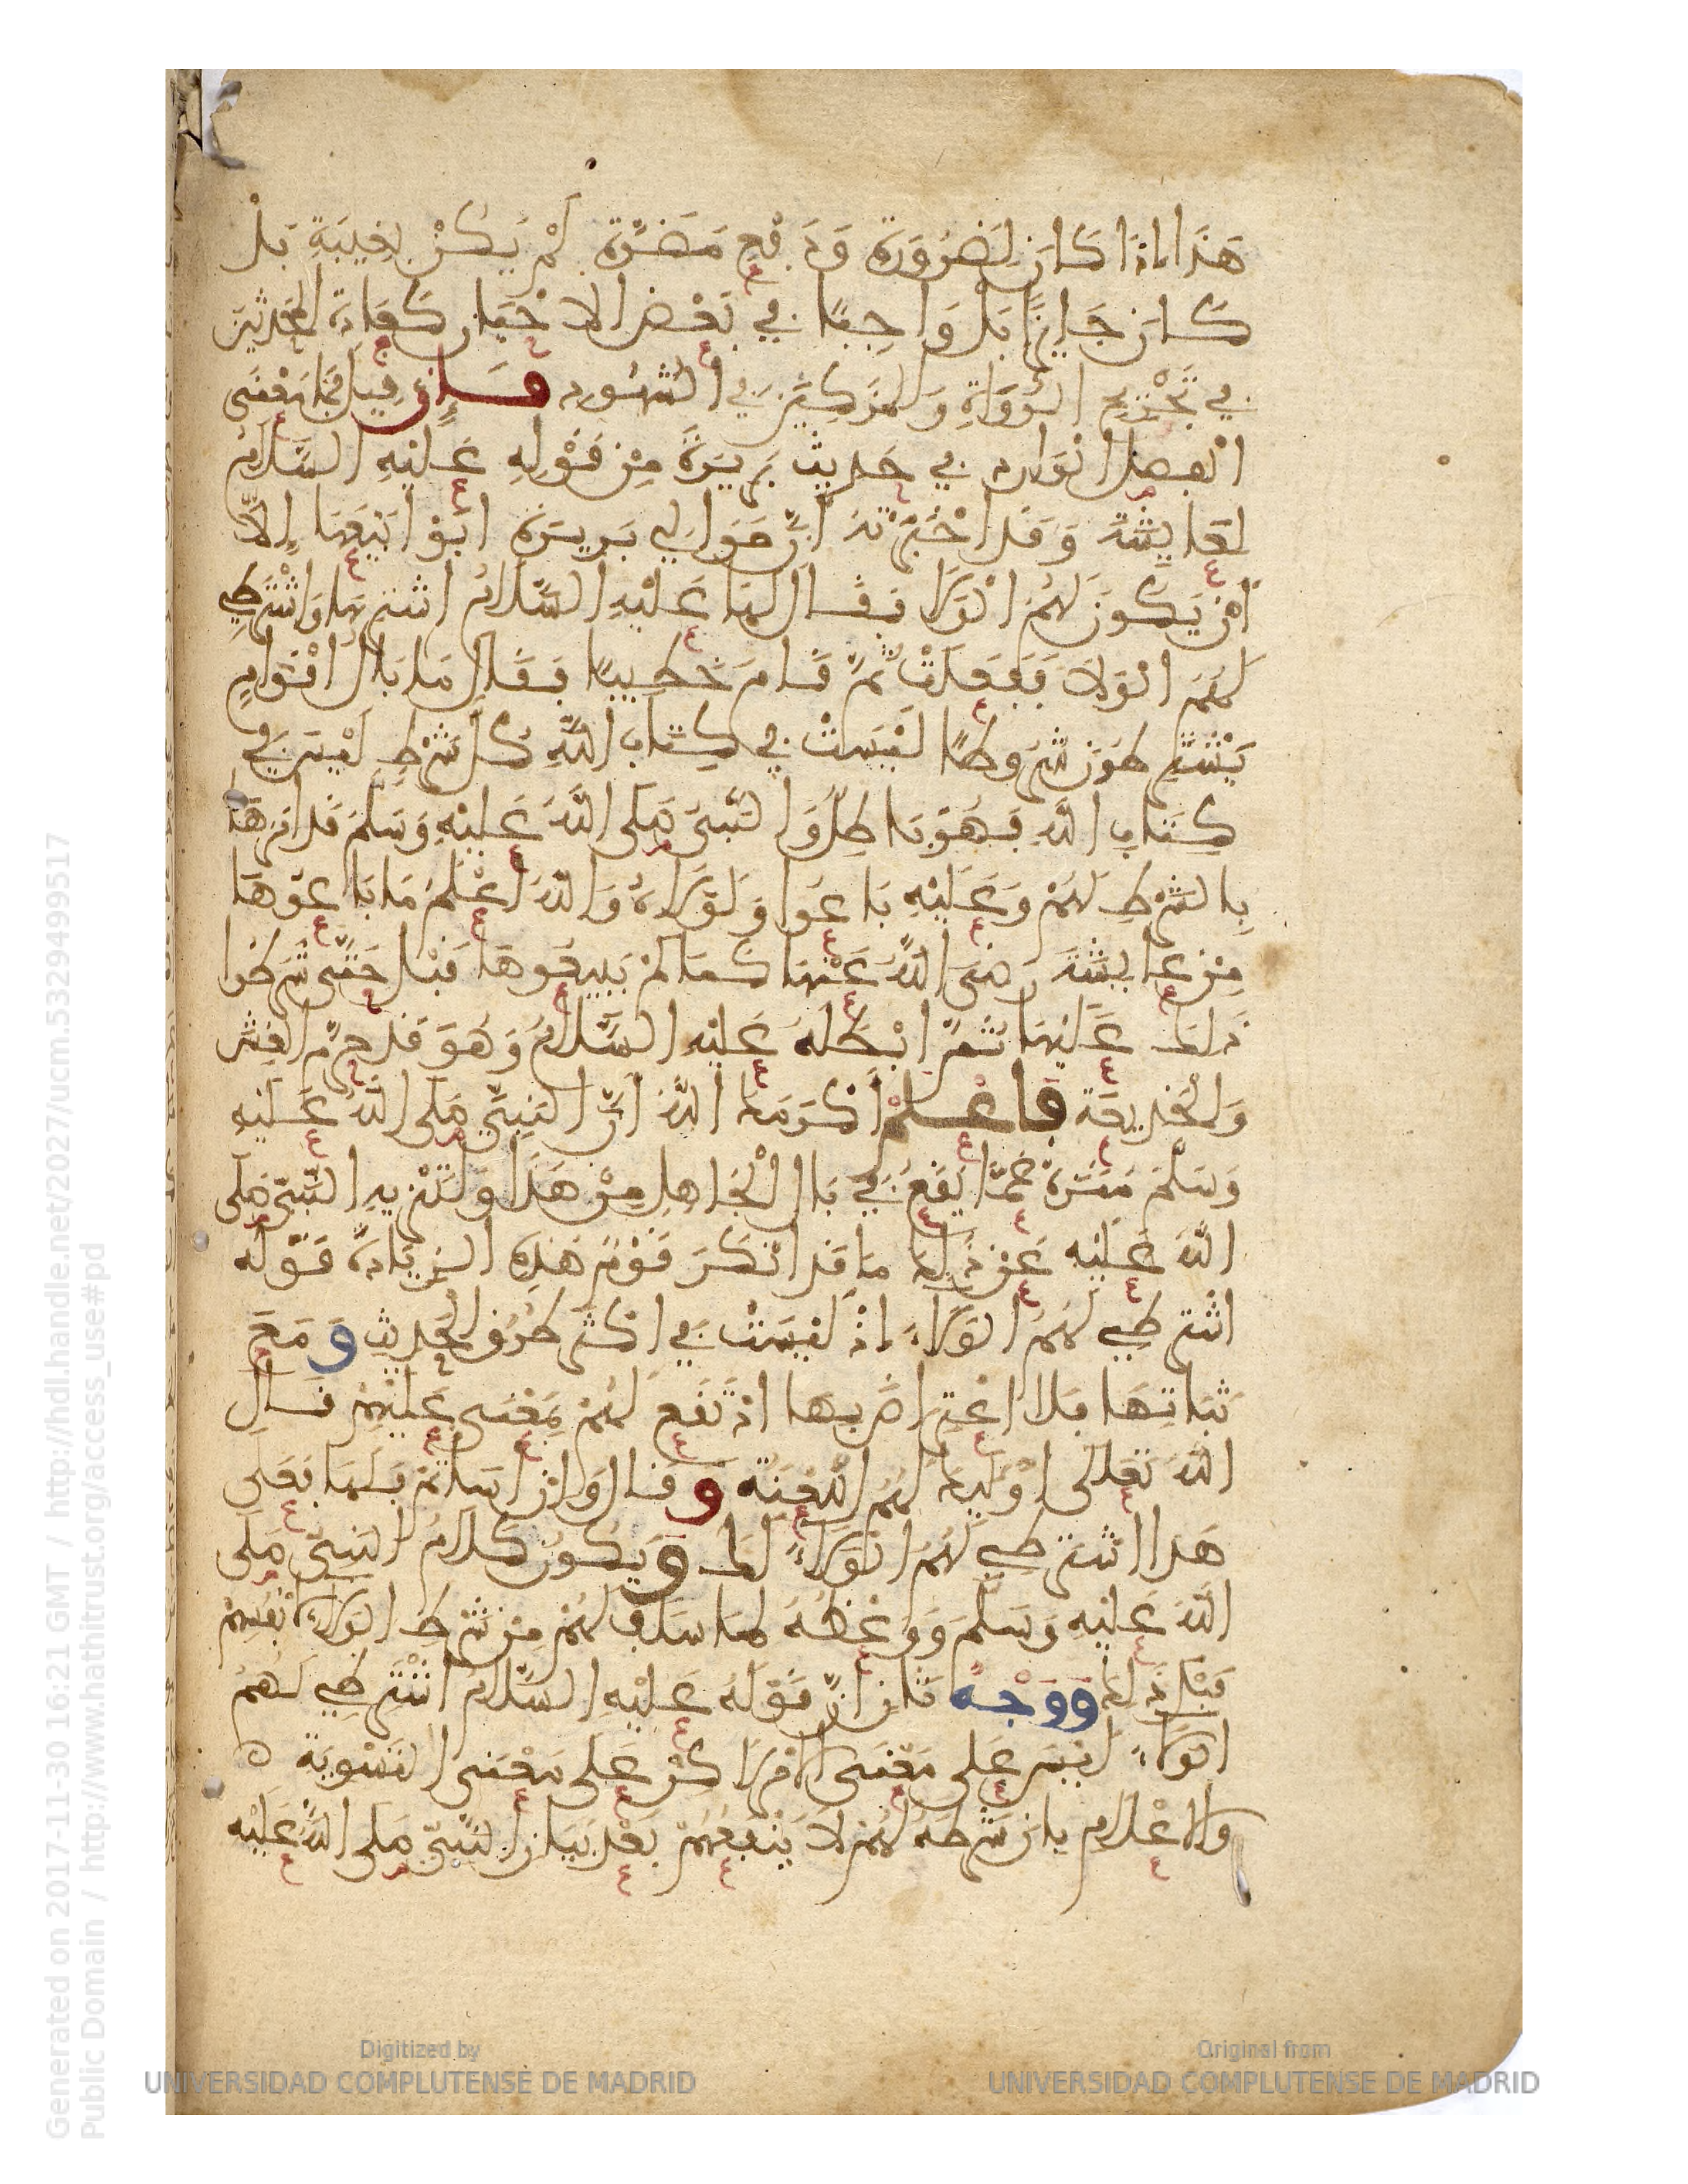 هَذَا اذَا كَانَ لِضَرُورَةٍ وَدَفْعِ مَضَرَّةٍ لَمْ يَكُنْ بِغِيبَةٍ بَلْ
كَانَ جَايِزًا بَلْ وَاجِبًا في بَعْضِ الاحْيَانِ كَعَادَةِ المُحَدِّثِينَ
في تَجْرِيحِ الرُّوَاةِ وَالْمُزَكِّينَ في الشُّهُودِ فَإن قِيلَ فَمَا مَعْنَى
الْمعضل الْوَارِدِ في حَدِيثِ بَرِيرَةَ مِنْ قَوْلِهِ عَلَيْهِ السَّلَامُ
لِعَايِشَةَ وَقَد اخْبَرَتْهُ أَنَّ مَوَالِي بَرِيرَةَ ابَوْا بَيْعَهَا إِلَّا
أَنْ يَكُونَ لَهُمُ الْوَلَا فَقَالَ لَهَا عَلَيْهِ السَّلَامُ اشْتَرِيهَا وَاشْتَرِطِي
لَهُمُ الْوَلَاءَ فَفَعَلَتْ ثُمَّ قَامَ خَطِيبًا فَقَالَ مَا بَالُ اقْوَامٍ
يَشْتَرِطُونَ شُرُوطًا لَيْسَتْ في كِتَابِ اللَّهِ كُلُّ شَرْطٍ لَيْسَ في
كِتَابِ اللَّهِ فَهُوَ بَاطِلٌ وَالنَّبِيُّ صَلَّى اللَّهُ عَلَيْهِ وَسَلَّمَ قَد امَرَهَا
بِالشَّرْطِ لَهُمْ وَعَلَيْهِ بَاعُوا وَلَوْلَاهُ وَاللَّهُ اعْلَمُ مَا بَاعُوهَا
مِنْ عَايِشَةَ رَضِيَ اللَّهُ عَنْهَا كَمَا لَمْ يَبِيعُوهَا قَبْلُ حَتَّى شَرَطُوا
ذَلِكَ عَلَيْهَا ثُمَّ ابْطَلَهُ عَلَيْهِ السَّلَامُ وَهُوَ قَد حَرَّمَ الغِشَّ
وَالْخَدِيعَةَ فَاعْلَمْ اكْرَمَكَ اللَّهُ أَنَّ النَّبِيَّ صَلَّى اللَّهُ عَلَيْهِ
وَسَلَّمَ مُنَزَّهٌ عَمَّا يَقَعُ في بَالِ الْجَاهِلِ مِنْ هَذَا وَلِتَنْزِيهِ النَّبِيِّ صَلَّى
اللَّهُ عَلَيْهِ عَنْ ذَلِكَ مَا قَد انْكَرَ قَوْمٌ هَذِهِ الزِّيَادَةَ قَوْلَهُ
اشْتَرِطِي لَهُمُ الْوَلَاءَ اذْ لَيْسَتْ في اكْثَرِ طُرُقِ الْحَدِيثِ وَمَعَ
ثَبَاتِهَا فَلَا اعْتِرَاضَ بِهَا اذْ تَقَع لَهُمْ بِمَعْنَى عَلَيْهِمْ قَالَ
اللَّهُ تَعَالَى اوْلَيِكَ لَهُمُ اللَّعْنَةُ وَقَالَ وَانْ اسَأْتُمْ فَلَهَا فَعَلَى
هَذَا اشْتَرِطِي لَهُمُ الْوَلَاءَ لَكِ وَيَكُونُ كَلَامُ النَّبِيِّ صَلَّى
اللَّهُ عَلَيْهِ وَسَلَّمَ وَوَعْظُهُ لِمَا سَلَفَ لَهُمْ مِنْ شَرْطِ الْوَلَاءِ لِأَنْفُسِهِمْ
قَبْلَ ذَلِكَ وَوَجْهٌ ثَانٍ انَّ قَوْلَهُ عَلَيْهِ السَّلَامُ اشْتَرِطِي لَهُمُ
الْوَلَاءَ لَيْسَ عَلَى مَعْنَى الامْرِ لَاكِنْ عَلَى مَعْنَى التَّسْوِيَةِ
وَالاعْلَامِ بِانَّ شَرْطَهُ لَهُمْ لَا يَنْفَعُهُمْ بَعْدَ بَيَانِ النَّبِيِّ صَلَّى اللَّهُ عَلَيْهِ
Generated on 2017-11-30 16:21 GMT / http://hdl.handle.net/2027/ucm.5329499517
Public Domain / http://www.hathitrust.org/access_use#pd
Digitized by
UNIVERSIDAD COMPLUTENSE DE MADRID
Original from
UNIVERSIDAD COMPLUTENSE DE MADRID